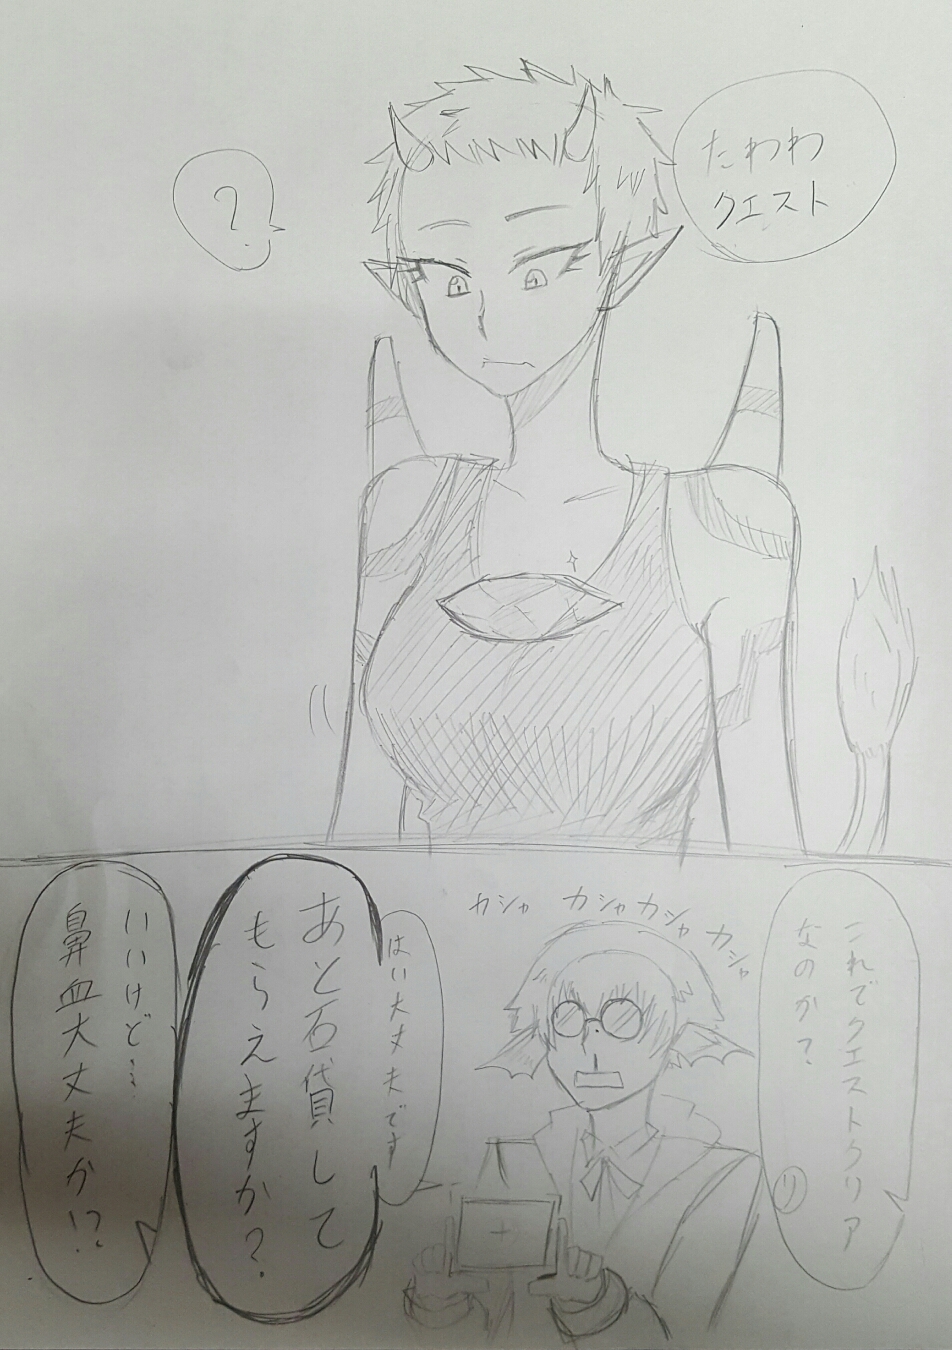 たわわ
クエスト
?
これでクエストクリア
なのか?
リ
カシャ カシャカシャカシャ
はい大丈夫です
あと石貸して
もらえますか?
いいけど…
鼻血大丈夫か!?